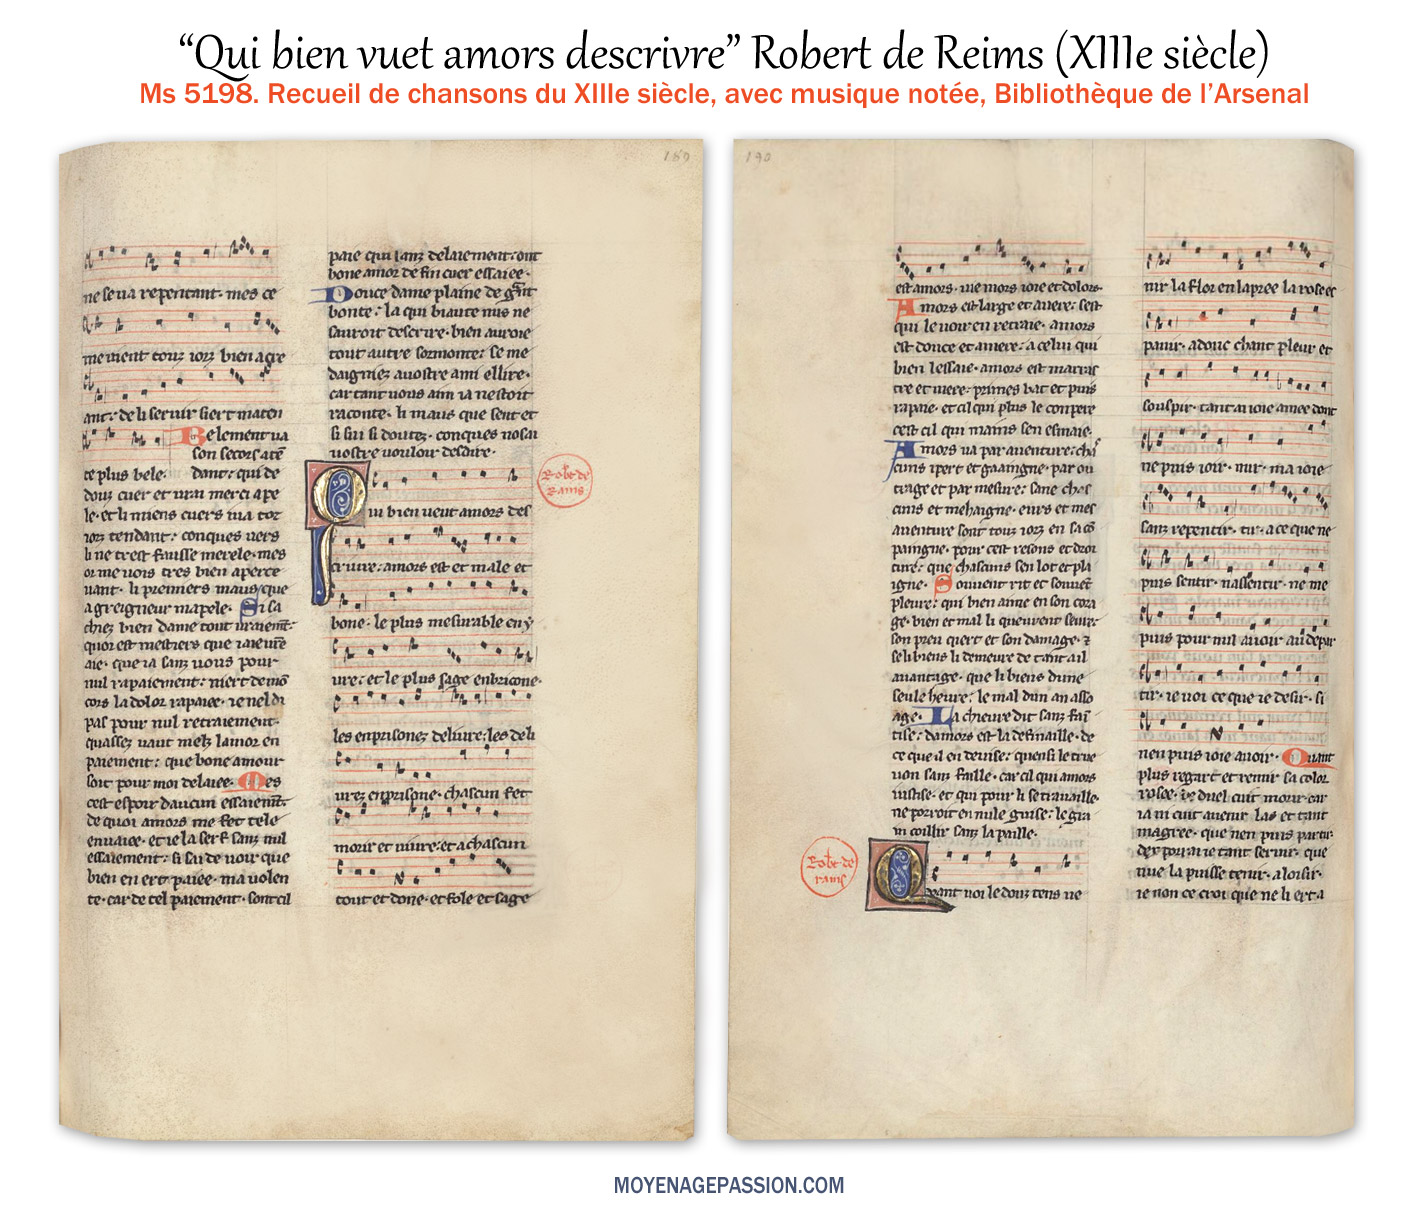 “Qui bien vuet amors descrivre” Robert de Reims (XIIIe siècle)
Ms 5198. Recueil de chansons du XIIIe siècle, avec musique notée, Bibliothèque de l’Arsenal
189
ne se va repentant. mes ce
me vient touz iorz bien a gre
ant. de li servir si ert maten
te plus bele.
Belement va
son secors ate
dant. qui de
douz cuer et vrai merci ape
le. et li miens cuers iva toz
iorz tendant. conques vers
li ne trest fausse merele. mes
or me vois tres bien aperce
vant. li premiers maus que
a greigneur mapele. Si sa
chiez bien dame tout vraiement.
quor est mestiers que iaie vre
aie. que ia sanz vous pour
nul rapaiement. niert de mon
cors la dolor rapaiee. ie nel di
pas pour nul retraiement.
quassez vaut melz lamor en
paiement. que bone amour
soit pour moi delaiee. Mes
cest espoir daucun essaiement.
de quoi amors me fet tele
envaiee. et ie la serf sanz nul
essaiement. si sai de voir que
bien en ert paiee. ma volen
te. car de tel paiement. sont cil
paie qui sanz delaiement. ont
bone amor de fin cuer essaiee.
Douce dame plaine de grant
bonte. la qui biaute nus ne
sauroit descrire. bien avroie
tout autre sormonte. se me
daigniez a vostre ami ellire.
car tant vous aim ia nestoit
raconte. li maus que sent et
si sui si doutez. conques nosai
vostre vouloir desdire.
Robt de
rains
Qui bien veut amors des
crivre. amors est et male et
bone. le plus mesurable eny
vre. et le plus sage enbricone.
les enprisonez delivre. les deli
vrez enprisone. chascun fet
morir et vivre. et a chascun
tout et done. et fole et sage
190
est amors. vie mors ioie et dolors.
Amors est large et avere. sest
qui le voir en retraie. amors
est douce et amere. a celui qui
bien lessaie. amors est marras
tre et mere. primes bat et puis
rapaie. et cil qui plus le conpere
cest cil qui mains sen esmaie.
Amors va par aventure. chas
cuns ipert et gaaingne. par ou
trage et par mesure. sane chas
cuns et mehaigne. eurs et mes
aventure sont touz iorz en sa con
paingne. pour cest resons et droi
ture. que chascuns sen lot et pla
igne. Souvent rit et souvent
pleure. qui bien aime en son cora
ge. bien et mal li queurent seure.
son preu quiert et son damage. et
se li biens li demeure de tant a il
avantage. que li biens dune
seule heure. le mal dun an asso
age. La chieure dit sanz fain
tise. damors est la definaille. de
ce que il en devise. quensi le true
von sanz faille. car cil qui amors
iustise. et qui pour li se travaille.
ne porroit en nule guise. le gra
in coillir sanz la paille.
Robt de
rains
Quant voi le douz tens ve
nir la flor en la pree la rose es
panir. adonc chant pleur et
souspir. tant ai ioie amee dont
ne puis ioir. mir. ma ioie
sanz repentir. tir. a ce que ne
puis sentir. nassentir. ne me
puis pour nul avoir au depar
tir. ie voi ce que ie desir. si
nen puis ioie avoir. Quant
plus regart et remir sa color
rosee. de duel cuit morir. car
ia ni cuit avenir. las et tant
magree. que nen puis partir.
dex porrai ie tant servir. que
nue la puisse tenir. a loisir.
ie non ce croi que ne li ert a
MOYENAGEPASSION.COM